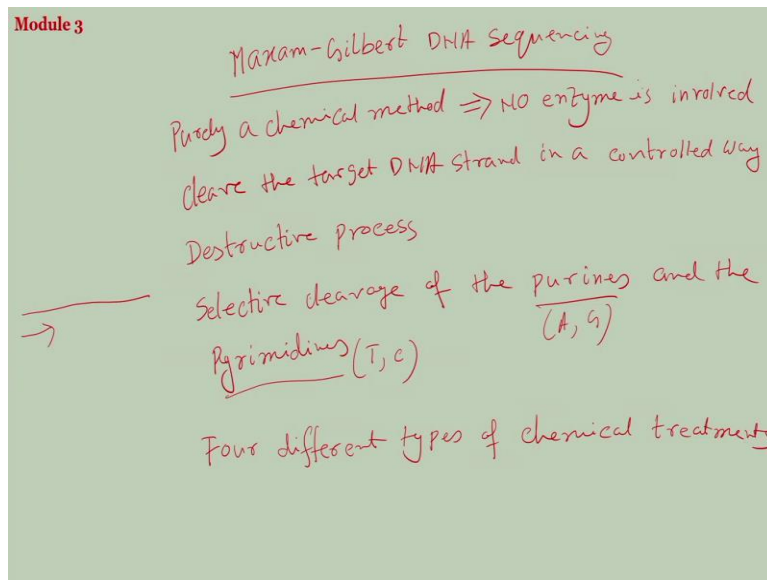 Module 3
Maxam-Gilbert DNA Sequencing
Purely a chemical method ⇒ NO enzyme is involved
cleave the target DNA strand in a controlled way
Destructive process
Selective cleavage of the purines and the
(A, G)
Pyrimidines (T, C)
Four different types of chemical treatments